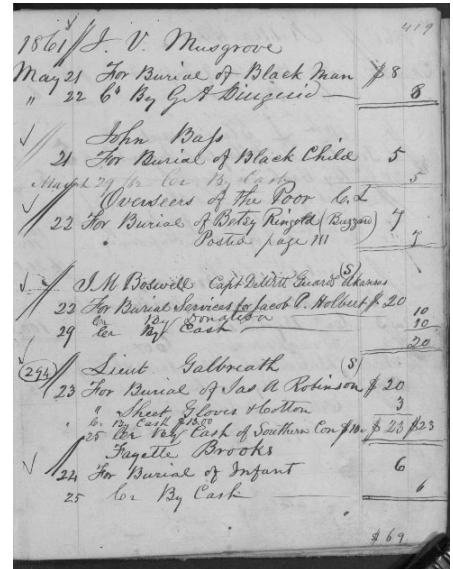 419
1861 J. V. Musgrove
May 21 For Burial of Black Man $8
" 22 Cr By G A Diuguid 8
John Bass
21 For Burial of Black Child 5
29 Cr By Cash 5
Overseers of the Poor
22 For Burial of Betsy Ringold (Buzzard) 7
Posted page 111 7
J M Boswell Capt DeWitt Guards Arkansas (S)
22 For Burial Services to Jacob P. Holbert $20
Cr By Donation 10
29 Cr By Cash 10
20
294 Lieut Galbreath (S)
23 For Burial of Jas A Robinson $20
" Sheet Gloves & Cotton 3
Cr By Cash $13.00
25 Cr By Cash of Southern Con $10 $23 $23
Fayette Brooks
24 For Burial of Infant 6
25 Cr By Cash 6
$69